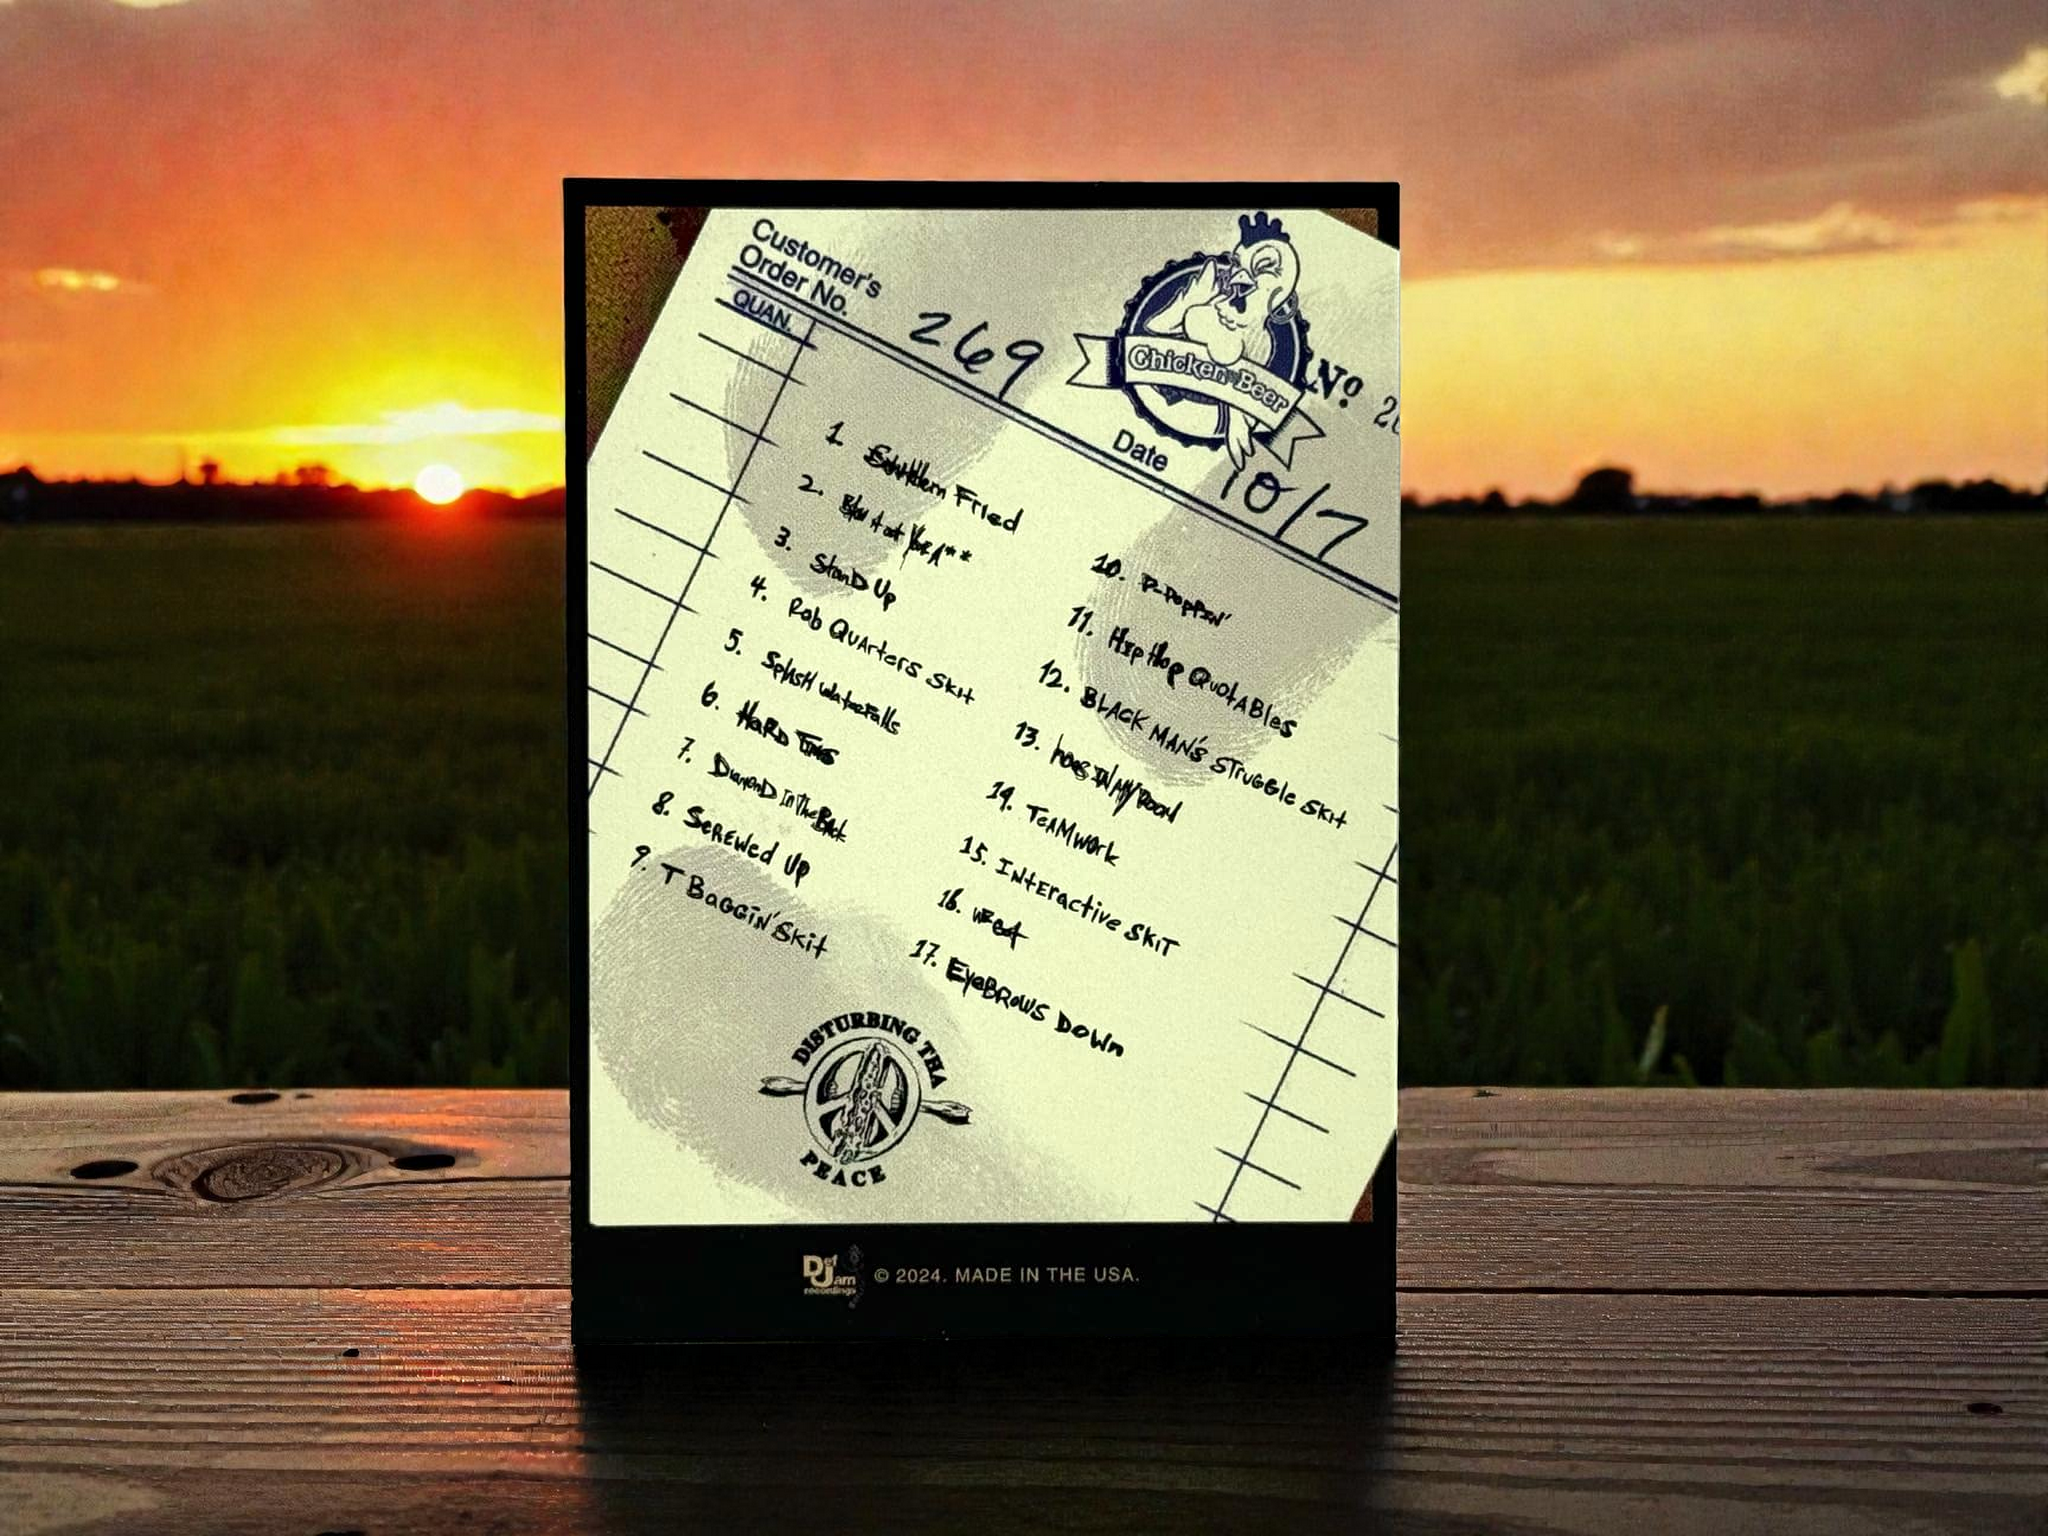 Customer's
Order No.
269
Chicken-N-Beer
No 26
QUAN.
Date
10/7
1. Southern Fried
2. Blow it out Your A**
3. Stand Up
4. Rob Quarters Skit
5. Splash Waterfalls
6. Hard Times
7. Diamond In The Back
8. Screwed Up
9. T Baggin' Skit
10. P-Poppin'
11. Hip Hop Quotables
12. BLACK MAN'S STruggle SKit
13. hoes IN MY Room
14. TeAMWOrk
15. INterActive SKiT
16. we got
17. EyeBROWS DOWn
DISTURBING THA
PEACE
Def
Jam
recordings
© 2024. MADE IN THE USA.